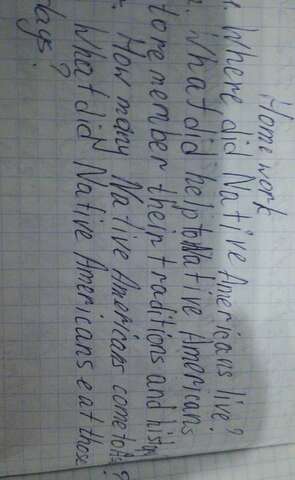 Homework
1. Where did Native Americans live?
2. What did help to Native Americans
to remember their traditions and
How many Native Americans come to
What did Native Americans eat those
days?